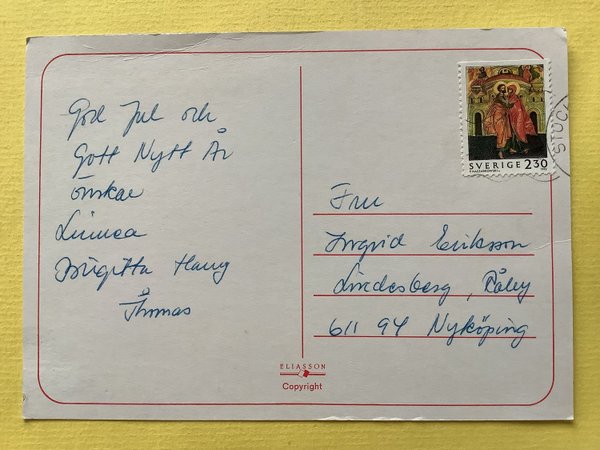 God Jul och
Gott Nytt År
önskar
Linnea
Birgitta Hang
Thomas
SVERIGE 2.30
STOC
Fru
Ingrid Eriksson
Lindesberg, Råby
611 94 Nyköping
ELIASSON
Copyright